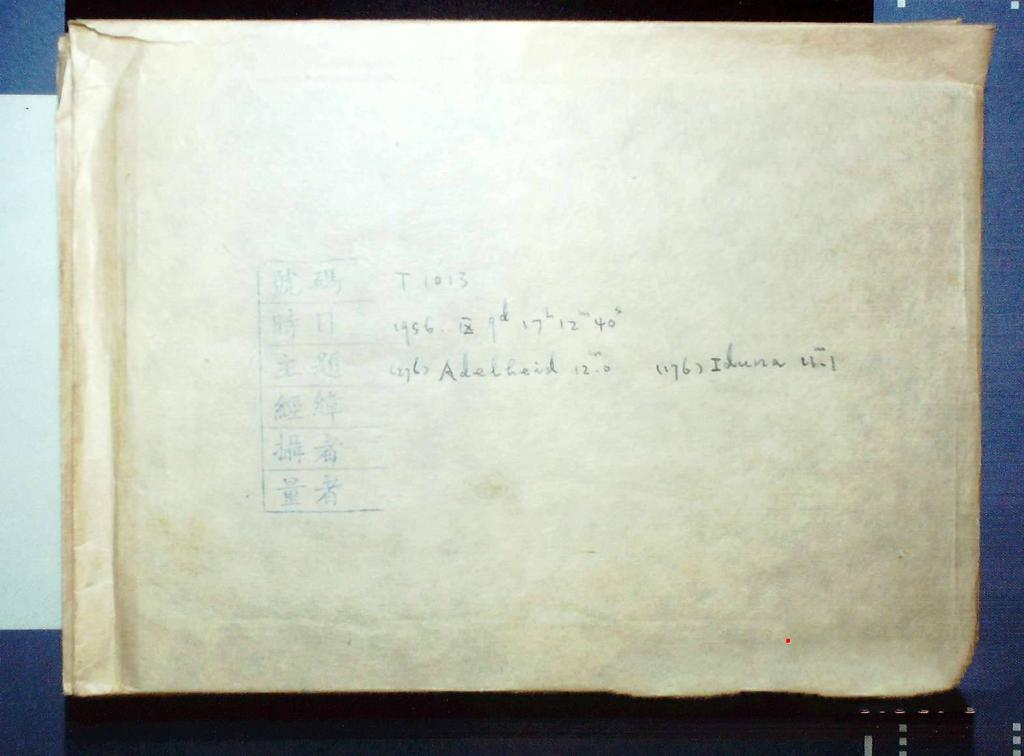 號碼 T 1013
時日 1956. IX 9d 17h 12m 40s
主題 (276) Adelheid 12m.0 (176) Iduna
經緯
攝者
量者